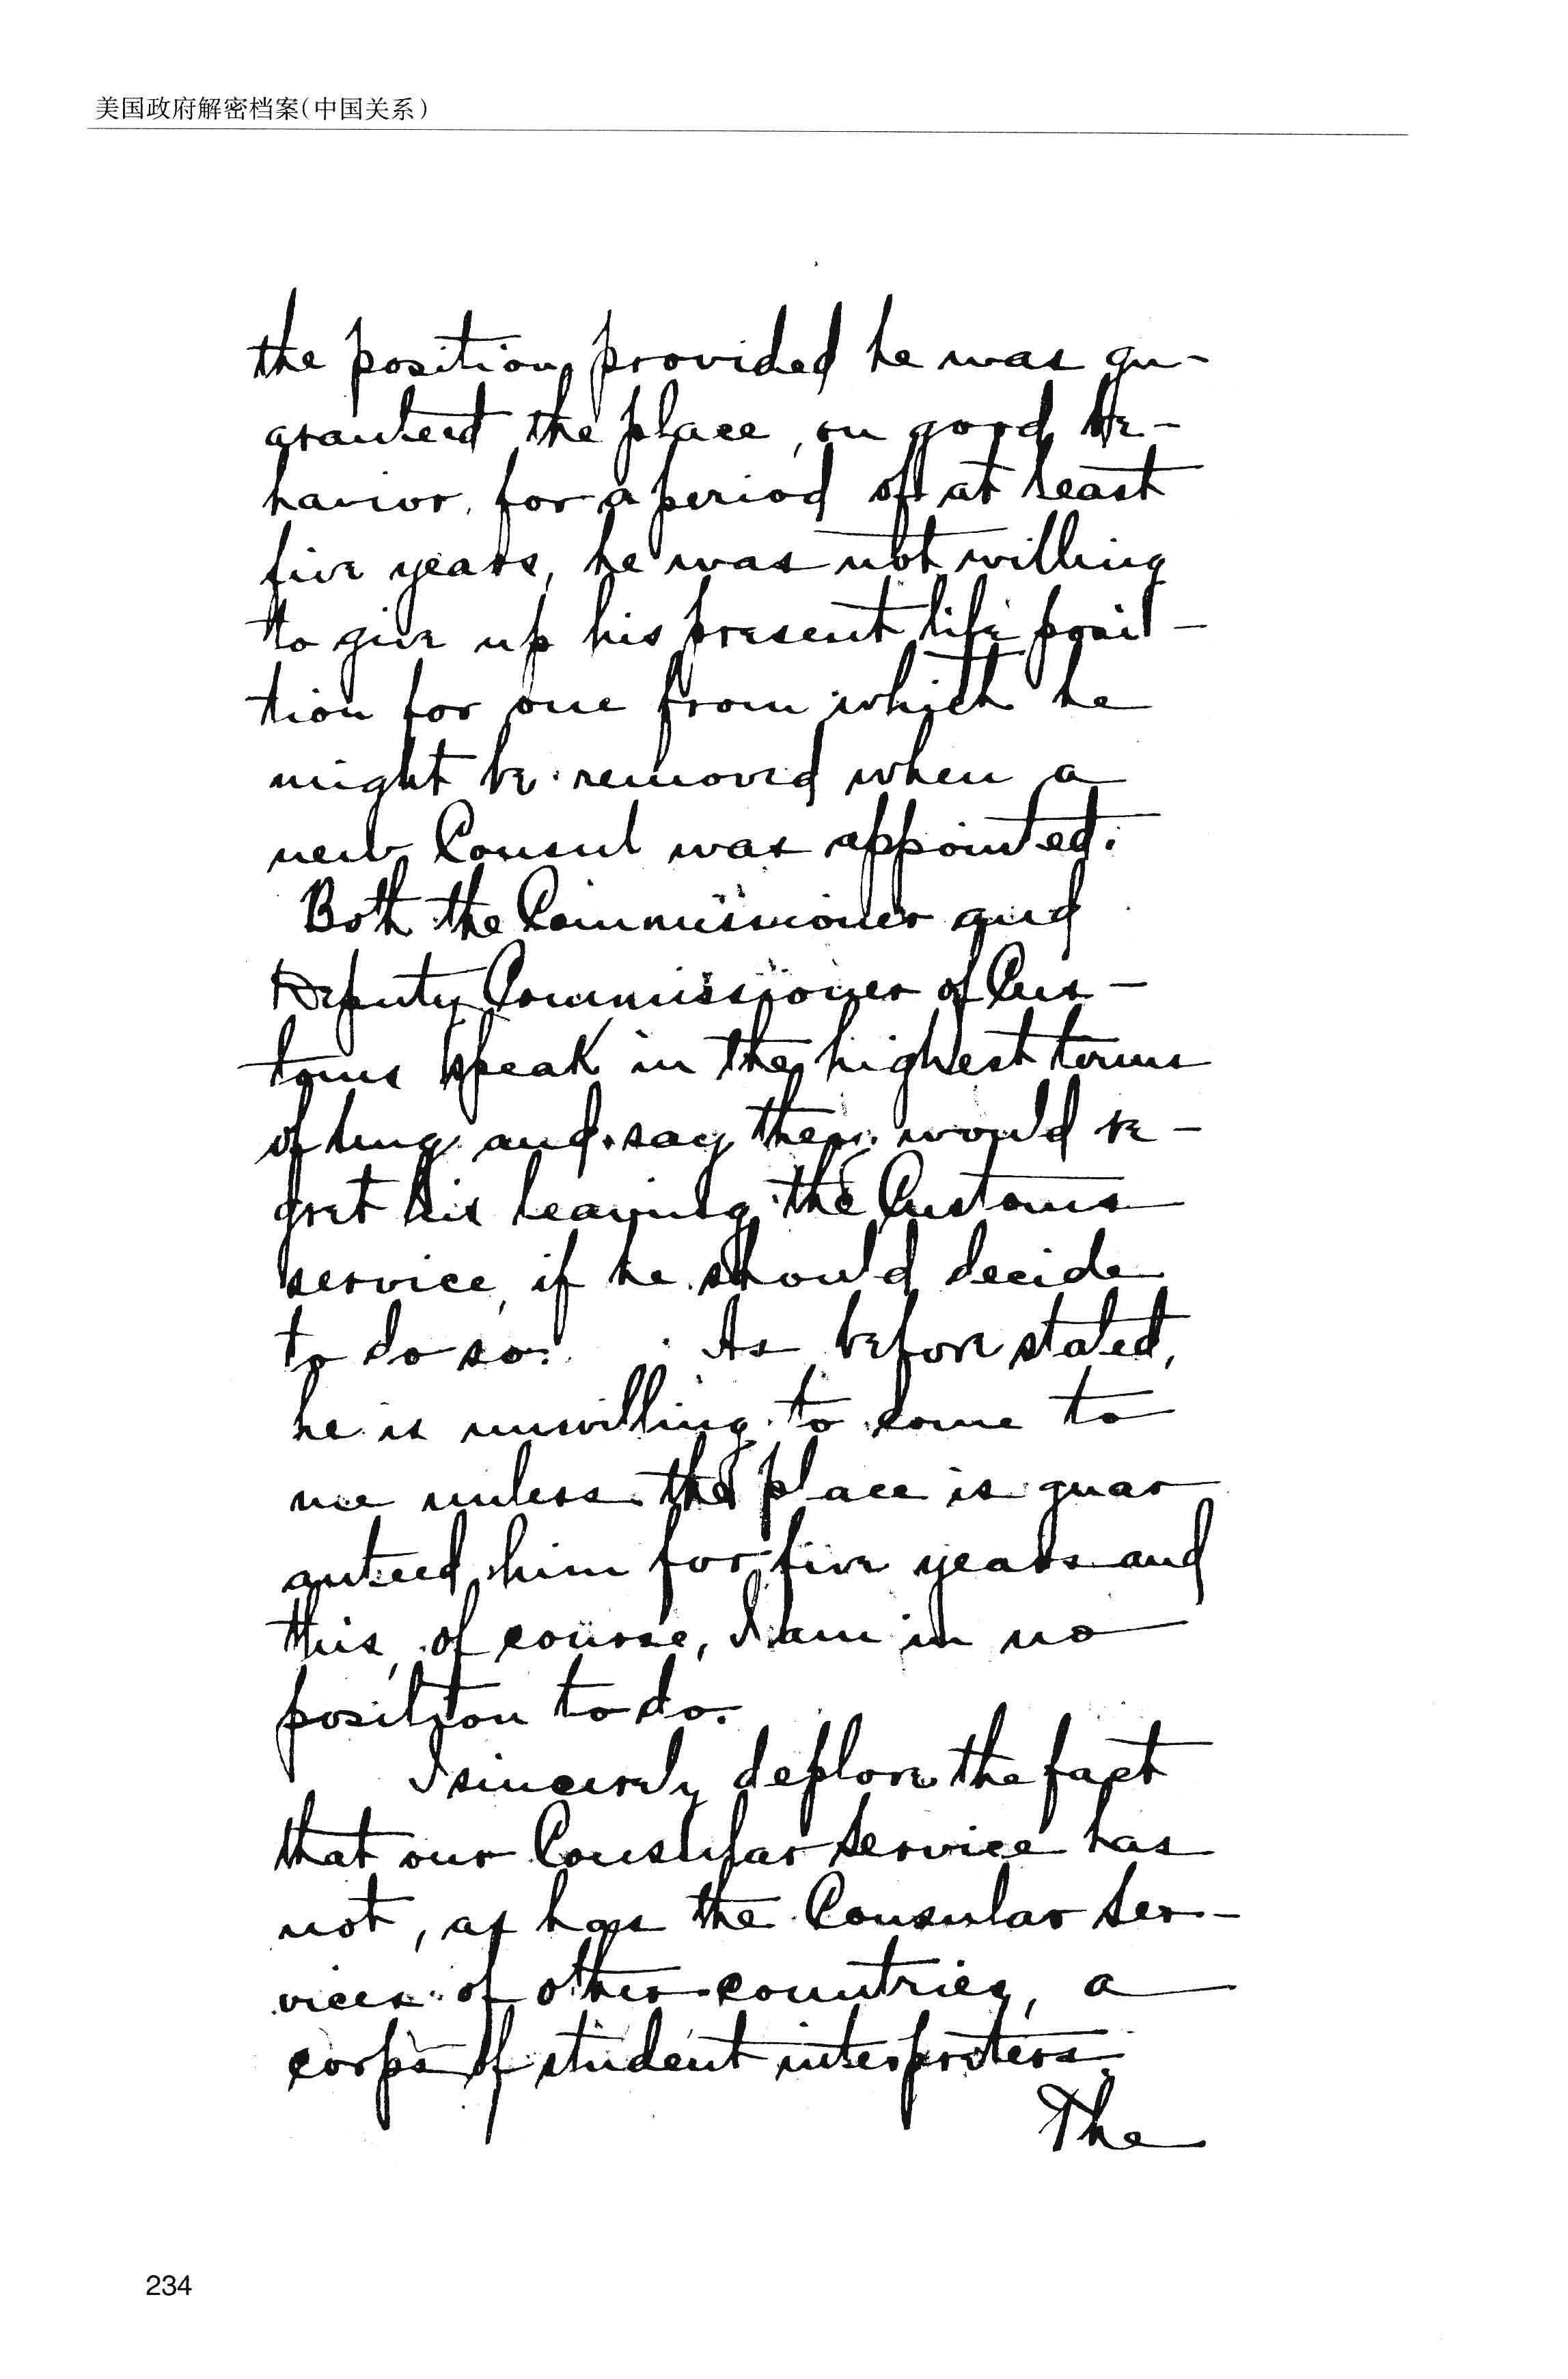 美国政府解密档案(中国关系)
the position provided he was gu-
aranteed the place, on good be-
havior, for a period of at least
five years, he was not willing
to give up his present life posi-
tion for one from which he
might be removed when a
new Consul was appointed.
Both the Commissioner and
Deputy Commissioner of Cus-
toms speak in the highest terms
of him and say they would re-
gret his leaving the Customs
service, if he should decide
to do so. As before stated,
he is unwilling to come to
me unless the place is guar
anteed him for five years and
this, of course, I am in no
position to do.
I sincerely deplore the fact
that our Consular Service has
not, as has the Consular Ser-
vices of other countries, a
corps of student interpreters.
The
234